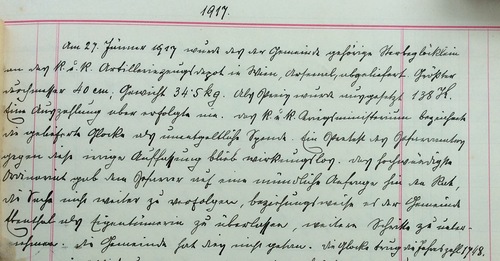 1917.
Am 27. Jänner 1917 wurde das der Gemeinde gehörige Sterbeglöcklein
an das k. u. k. Artilleriezeugsdepot in Wien, Arsenal, abgeliefert. Größter
durchmesser 40 cm, Gewicht 34·5 kg. Als Preis wurde ausgesetzt 138 K.
Eine Auszahlung aber erfolgte nie. das k. u. k. Kriegsministerium bezeichnete
die gelieferte Glocke als unentgeltliche Spende. Ein Protest des Gefertigten
gegen diese irrige Auffassung blieb wirkungslos. das hochwürdigste
Ordinariat gab dem Gefertigten auf eine mündliche Anfrage hin den Rat,
die Sache nicht weiter zu verfolgen, beziehungsweise es der Gemeinde
als Eigentümerin zu überlassen, weitere Schritte zu unter-
nehmen. die Gemeinde hat dies nicht getan. die Glocke trug die Jahreszahl 1748.